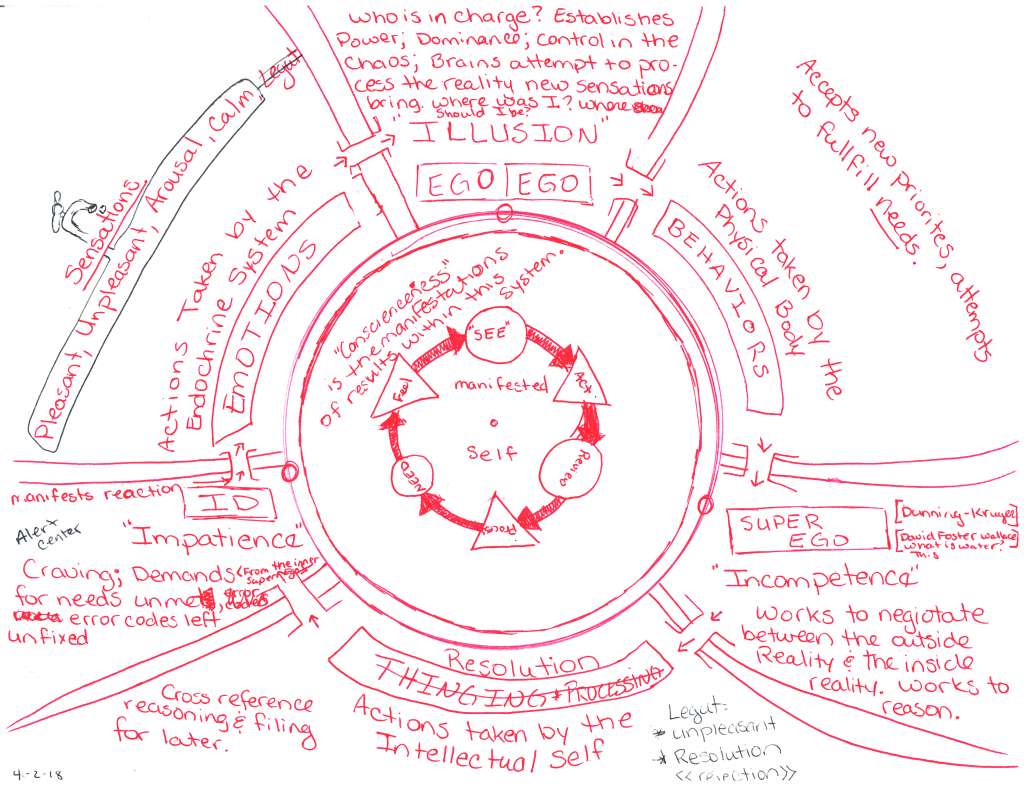 who is in charge? Establishes
Power; Dominance; Control in the
Chaos; Brains attempt to pro-
cess the reality new sensations
bring. where was I? where
should I be?
"ILLUSION"
EGO EGO
Legut
Sensations
Pleasant, Unpleasant, Arousal, Calm
Actions Taken by the
Endocrine System
EMOTIONS
Accepts new priorites, attempts
to fullfill needs.
Actions taken by the
Physical Body
BEHAVIORS
"Conscienceness"
is the manifestations
of results within this
system.
"SEE"
Act.
Review
Process
NEED
Feel
manifested
Self
manifests reaction
ID
Alert
Center
"Impatience"
Craving; Demands <From the inner
Super Ego>
for needs unmet, error
codes
error codes left
unfixed
SUPER
EGO
[Dunning-Kruger]
[David Foster Wallace
what is water?
This
"Incompetence"
works to negiotate
between the outside
Reality & the inside
reality. works to
reason.
Resolution
THINGING * PROCESSING
Actions taken by the
Intellectual Self
Cross reference
reasoning & filing
for later.
Legut:
* unpleasant
* Resolution
<<rejection>>
4-2-18